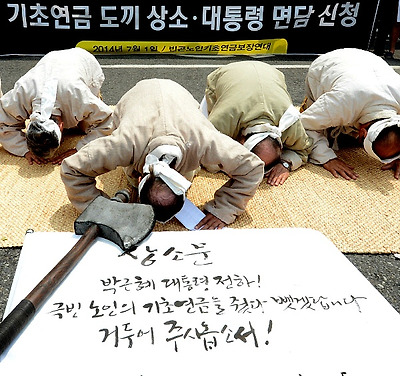 기초연금 도끼 상소·대통령 면담 신청
2014년 7월 1일 / 빈곤노인기초연금보장연대
상소문
박근혜 대통령 전하!
극빈 노인의 기초연금을 줬다 뺏겠답니다
거두어 주시옵소서!